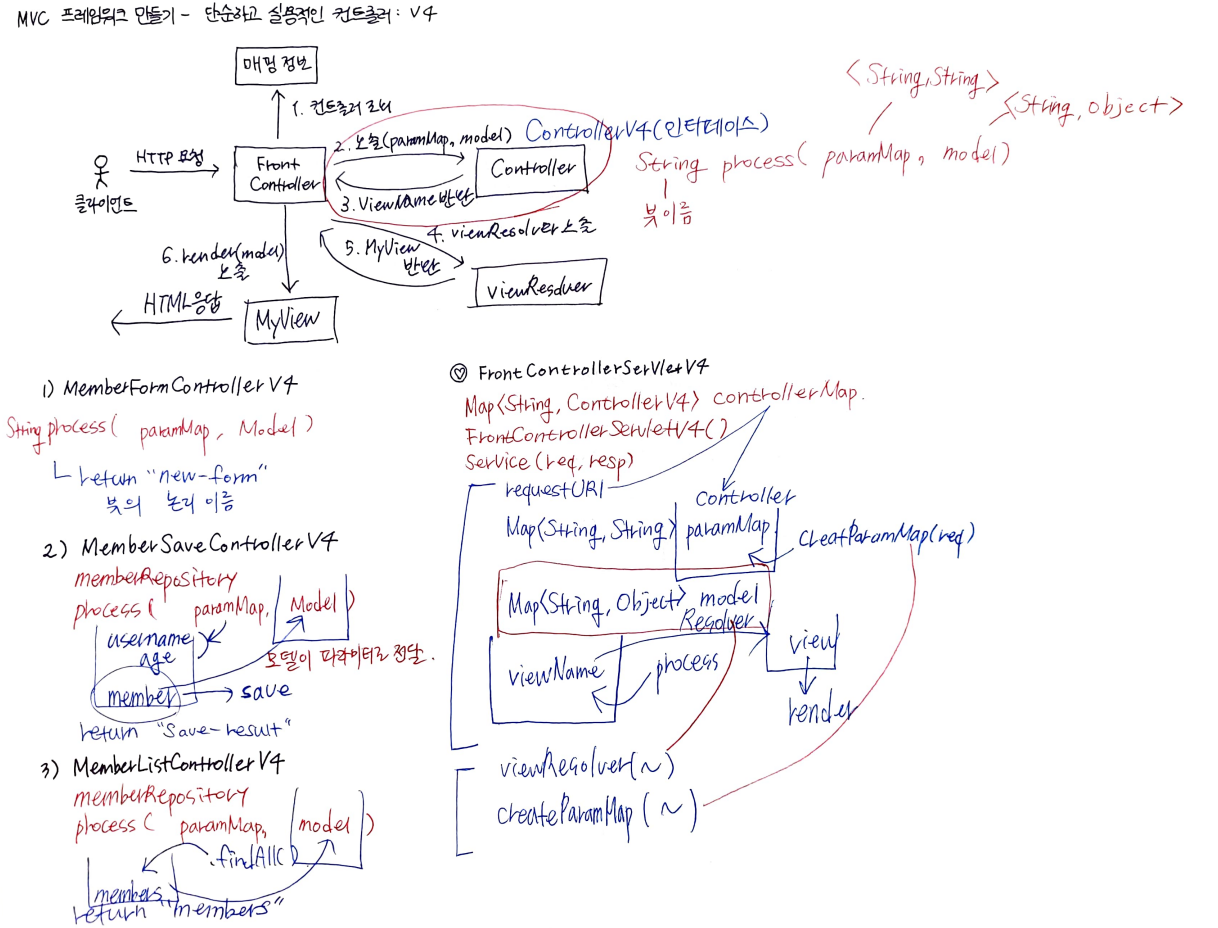 MVC 프레임워크 만들기 - 단순하고 실용적인 컨트롤러: V4
매핑 정보
1. 컨트롤러 조회
HTTP 요청
클라이언트
Front Controller
2. 호출(paramMap, model)
Controller
3. ViewName 반환
ControllerV4(인터페이스)
<String,String>
<String, Object>
String process( paramMap, model)
뷰이름
4. viewResolver 호출
5. MyView 반환
viewResolver
6. render(model) 호출
HTML응답
MyView
1) MemberFormControllerV4
String process( paramMap, Model)
return "new-form"
뷰의 논리 이름
2) MemberSaveControllerV4
memberRepository
process( paramMap, Model)
username
age
모델이 파라미터로 전달.
member → save
return "save-result"
3) MemberListControllerV4
memberRepository
process( paramMap, model)
.findAll()
members
return "members"
♡ FrontControllerServletV4
Map<String, ControllerV4> controllerMap.
FrontControllerServletV4()
Service(req, resp)
requestURI
Controller
Map(String, String) paramMap
creatParamMap(req)
Map<String, Object> model
Resolver
view
viewName
process
render
viewResolver(~)
createParamMap(~)